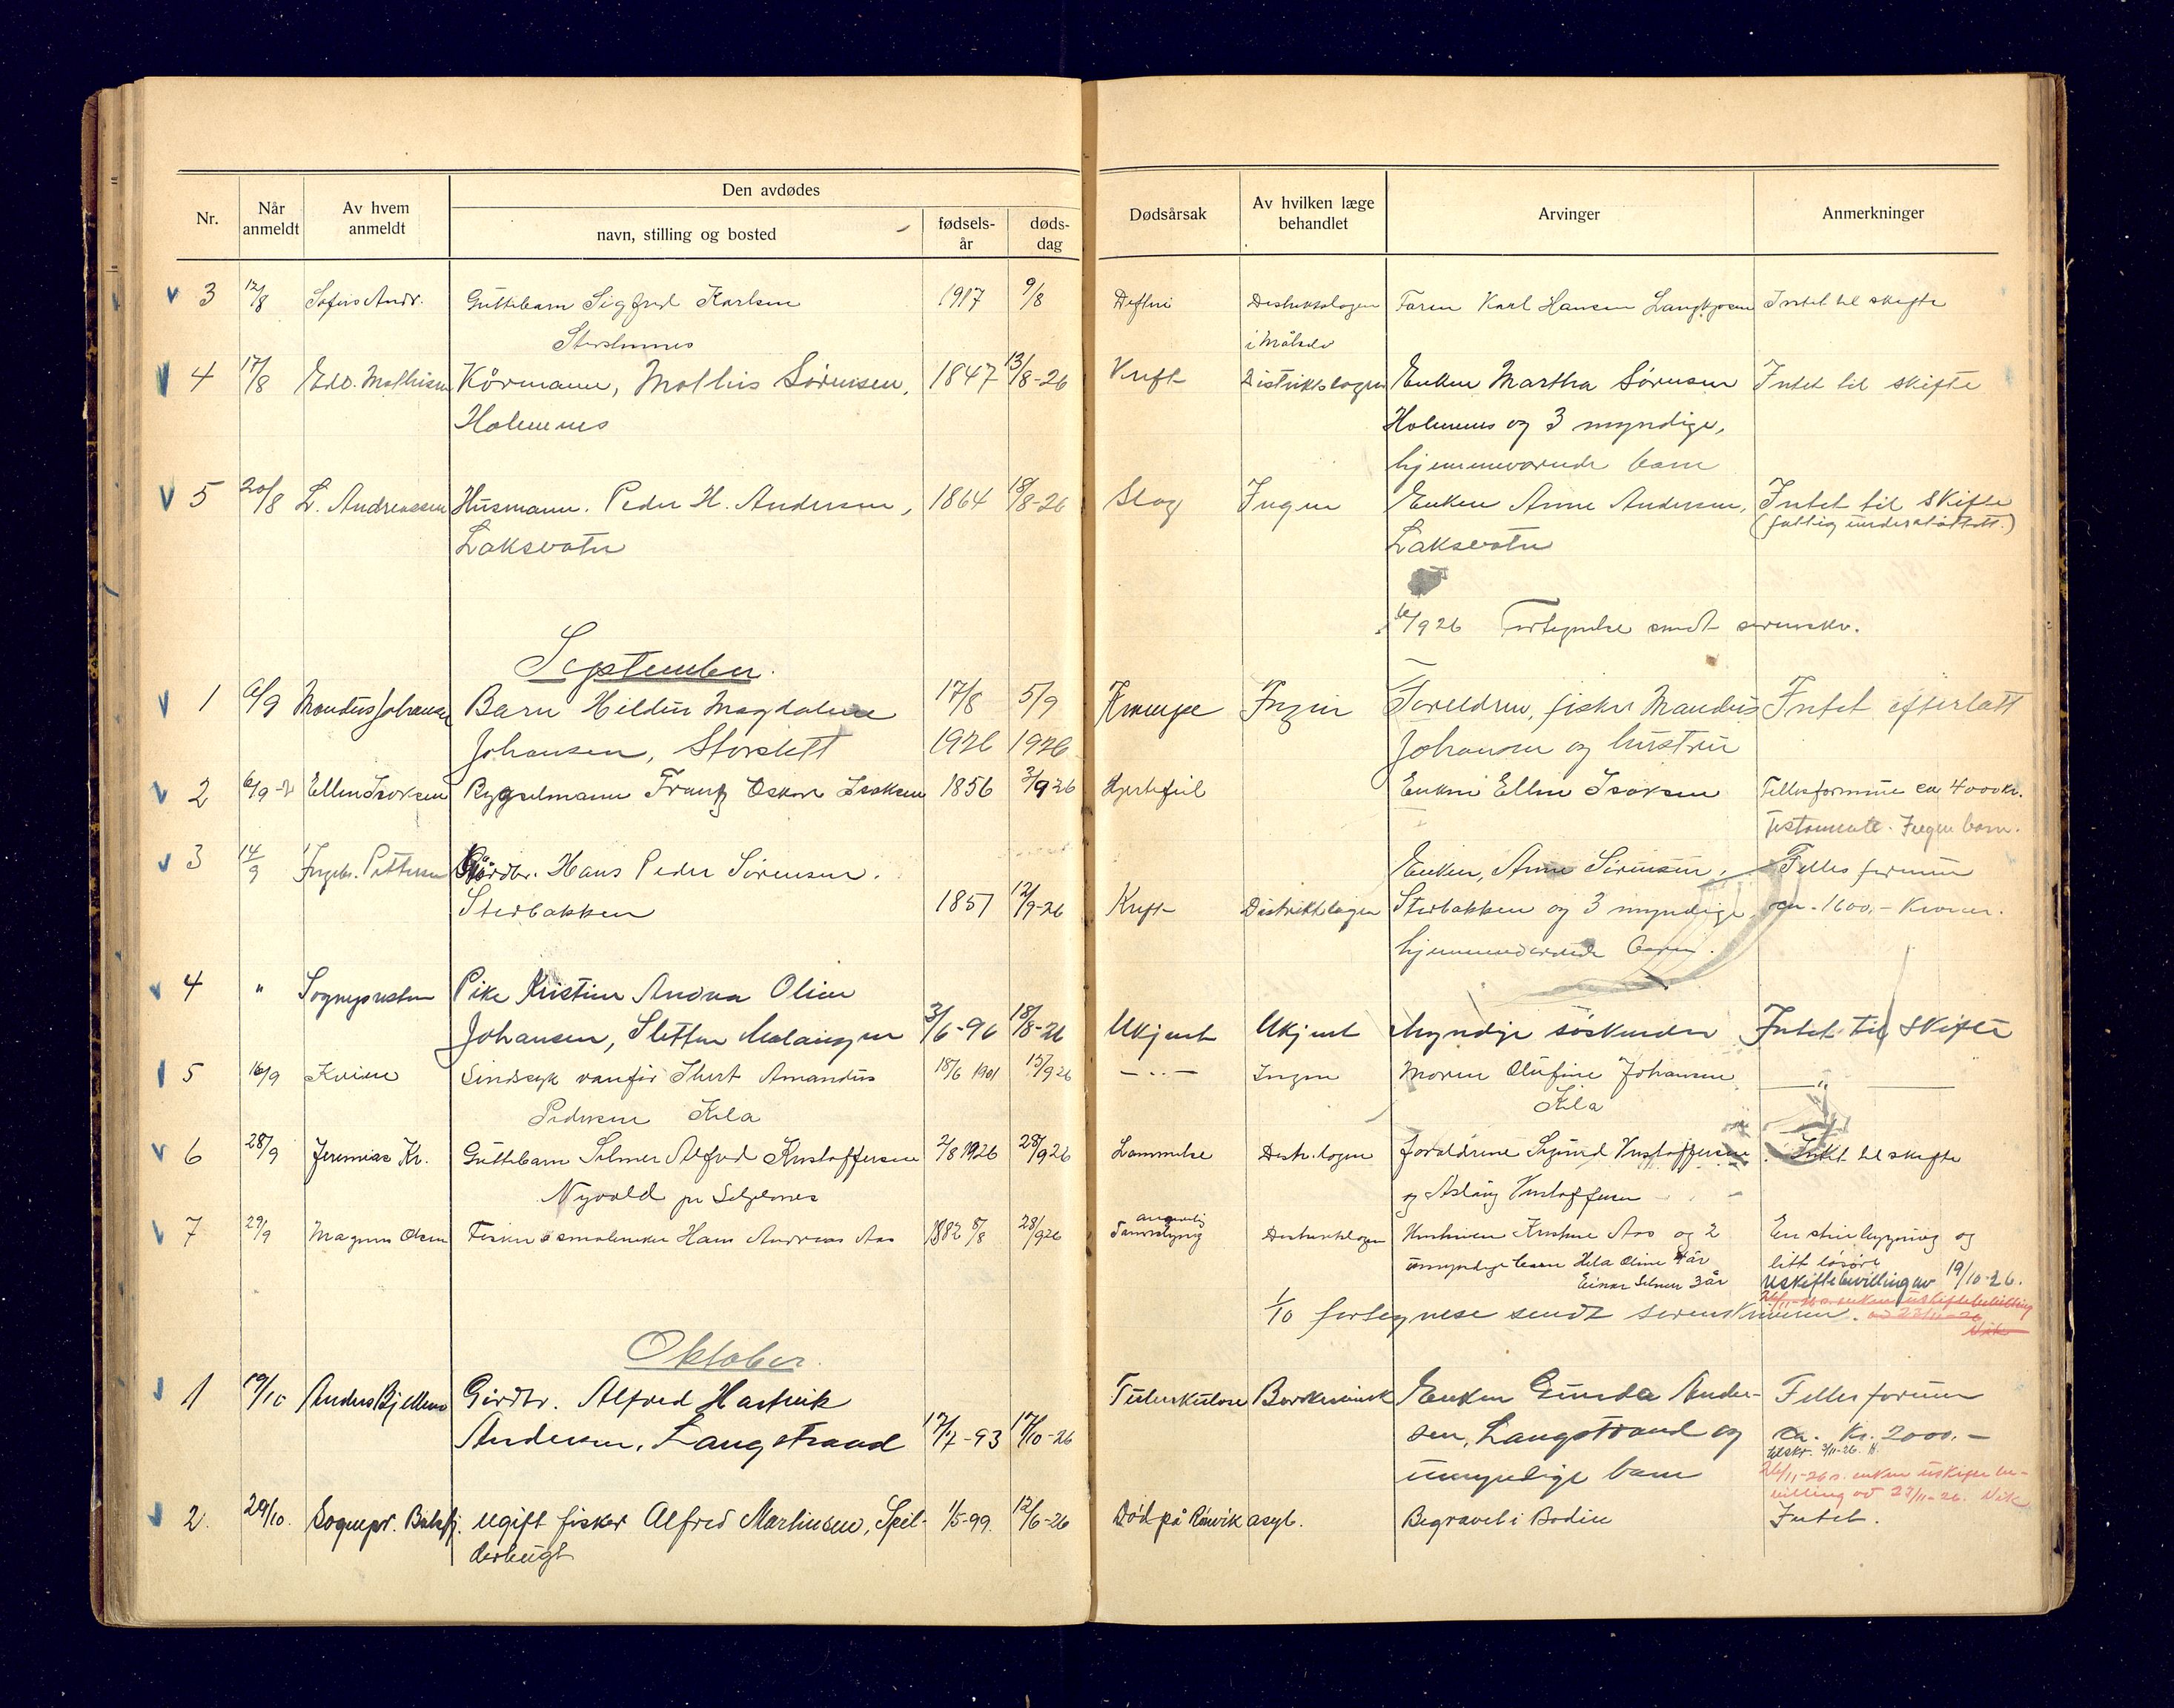 Nr.
Når anmeldt
Av hvem anmeldt
Den avdødes
navn, stilling og bosted
fødsels-år
døds-dag
Dødsårsak
Av hvilken læge behandlet
Arvinger
Anmerkninger
3 12/8 Sofus Andr. Guttebarn Sigfred Karlsen 1917 9/8 Difteri Distriktslægen Faren Karl Hansen Intet til skifte
i Målselv
4 17/8 Edv. Mathisen Kårmann, Mathis Sörensen, 1847 13/8-26 Kreft Distriktslægen Enken Martha Sörensen Intet til skifte
Holmenes Holmenes og 3 myndige,
hjemmeværende barn
5 20/8 L. Andreassen Husmann. Peder H. Andersen, 1864 18/8-26 Slag Ingen Enken Anne Andersen, Intet til skifte
(fattig understöttet.)
Laksvatn Laksvatn
6/9 26 Fortegnelse sendt sorenskr.
September.
1 6/9 Mandus Johansen Barn Hildur Magdalene 17/8 5/9 Krampe Ingen Foreldrene, fisker Mandus Intet efterlatt
Johansen, Storslett 1926 1926 Johansen og hustru
2 6/9 Ellen Isaksen Bygselmann Frantz Oskar Isaksen 1856 3/9 26 Hjertefeil Enken Ellen Isaksen Fellesformue ca 4000 kr.
Testamente. Ingen barn.
3 14/9 Ingebr. Pettersen Gårdbr. Hans Peder Sörensen. Enken, Anne Sörensen, Fellesformue
Sterbakken 1851 12/9-26 Kreft Distriktslægen Sterbakken og 3 myndige ca. 1600,- Kroner.
hjemmeværende barn.
4 " Sognepresten Pike Kristine Andrea Oline
Johansen, Sletten Malangen 3/6-96 18/8-26 Ukjent Ukjent Myndige söskende Intet til skifte
5 16/9 Kvien Sindssyk vanför Amandus 18/6 1901 15/9 26 - " - Ingen Moren Olufine Johansen - " -
Pedersen Kila Kila
6 28/9 Jeremias Kr. Guttebarn Selmer Alfred Kristoffersen 2/8 1926 28/9 26 Lammelse Distr.lægen Foreldrene Sigurd Kristoffersen Intet til skifte
Nyvold pr Seljelvnes og Aslaug Kristoffersen
7 29/9 Magnus Olsen Fisker o småbruker Hans Andreas Aas 1882 8/8 28/9 26 angivelig Distriktslægen Hustruen Kristine Aas og 2 En stuebygning og
umyndige barn Hela Oline 4 år litt lösöre
Einar Selmer 3 år Uskiftebevilling av 19/10-26.
1/10 fortegnese sendt sorenskriveren.
Oktober.
1 19/10 Anders Bjellmo Gårdbr. Alfred Hartvik Tuberkulose Borchsenius Enken Gunda Ander- Fellesformue
Andersen, Langstrand 17/7-93 17/10-26 sen, Langstrand og ca. Kr. 2000.-
umyndige barn
26/11-26 s. enken uskiftebe-
villing av 23/11-26.
2. 29/10. Sognepr. Balsfj. ugift fisker Alfred Martinsen, Spil- 1/5-99. 12/6-26 Död på Rönvik asyl. Begravet i Bodin Intet.
derbugt